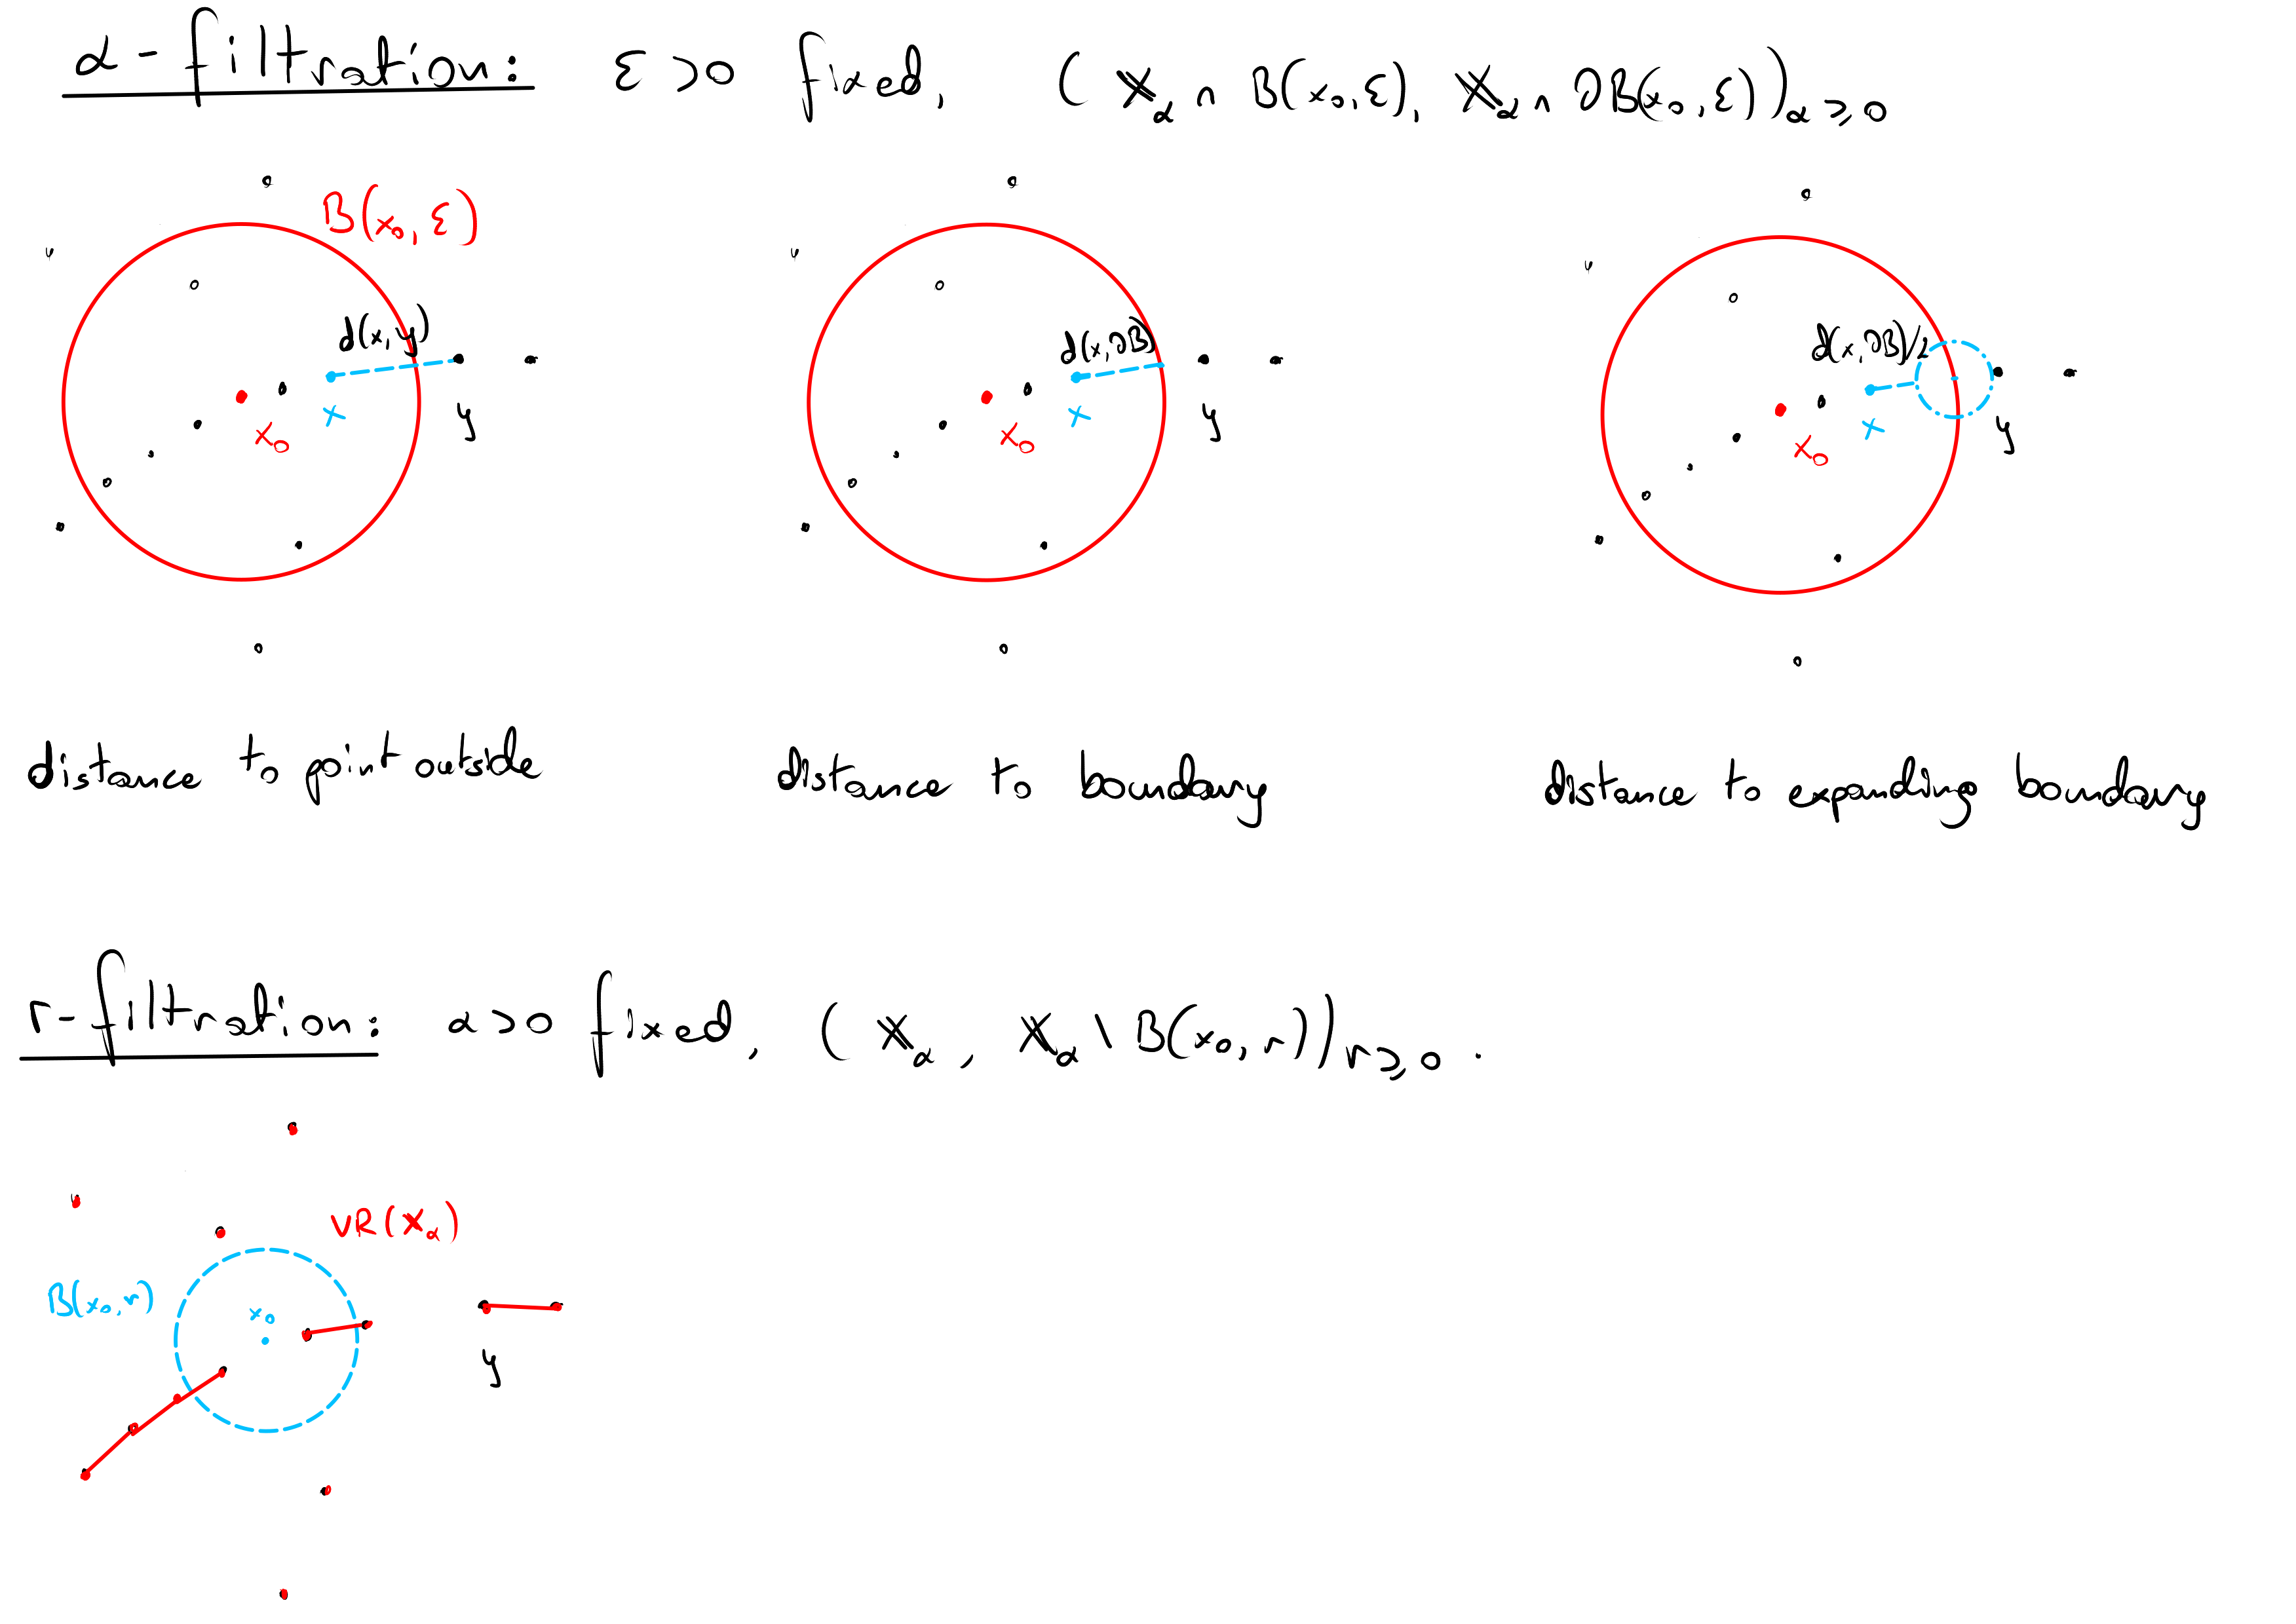 α-filtration: ε>0 fixed, (𝕏_α ∩ B(x₀,ε), 𝕏_α ∩ ∂B(x₀,ε))_{α≥0}
B(x₀, ε)
d(x,y)
x₀
x
y
d(x,∂B)
x₀
x
y
d(x,∂B)/2
x₀
x
y
distance to point outside
distance to boundary
distance to expanding boundary
r-filtration: α>0 fixed, (𝕏_α, 𝕏_α \ B(x₀,r))_{r≥0}.
VR(𝕏_α)
B(x₀,r)
x₀
y